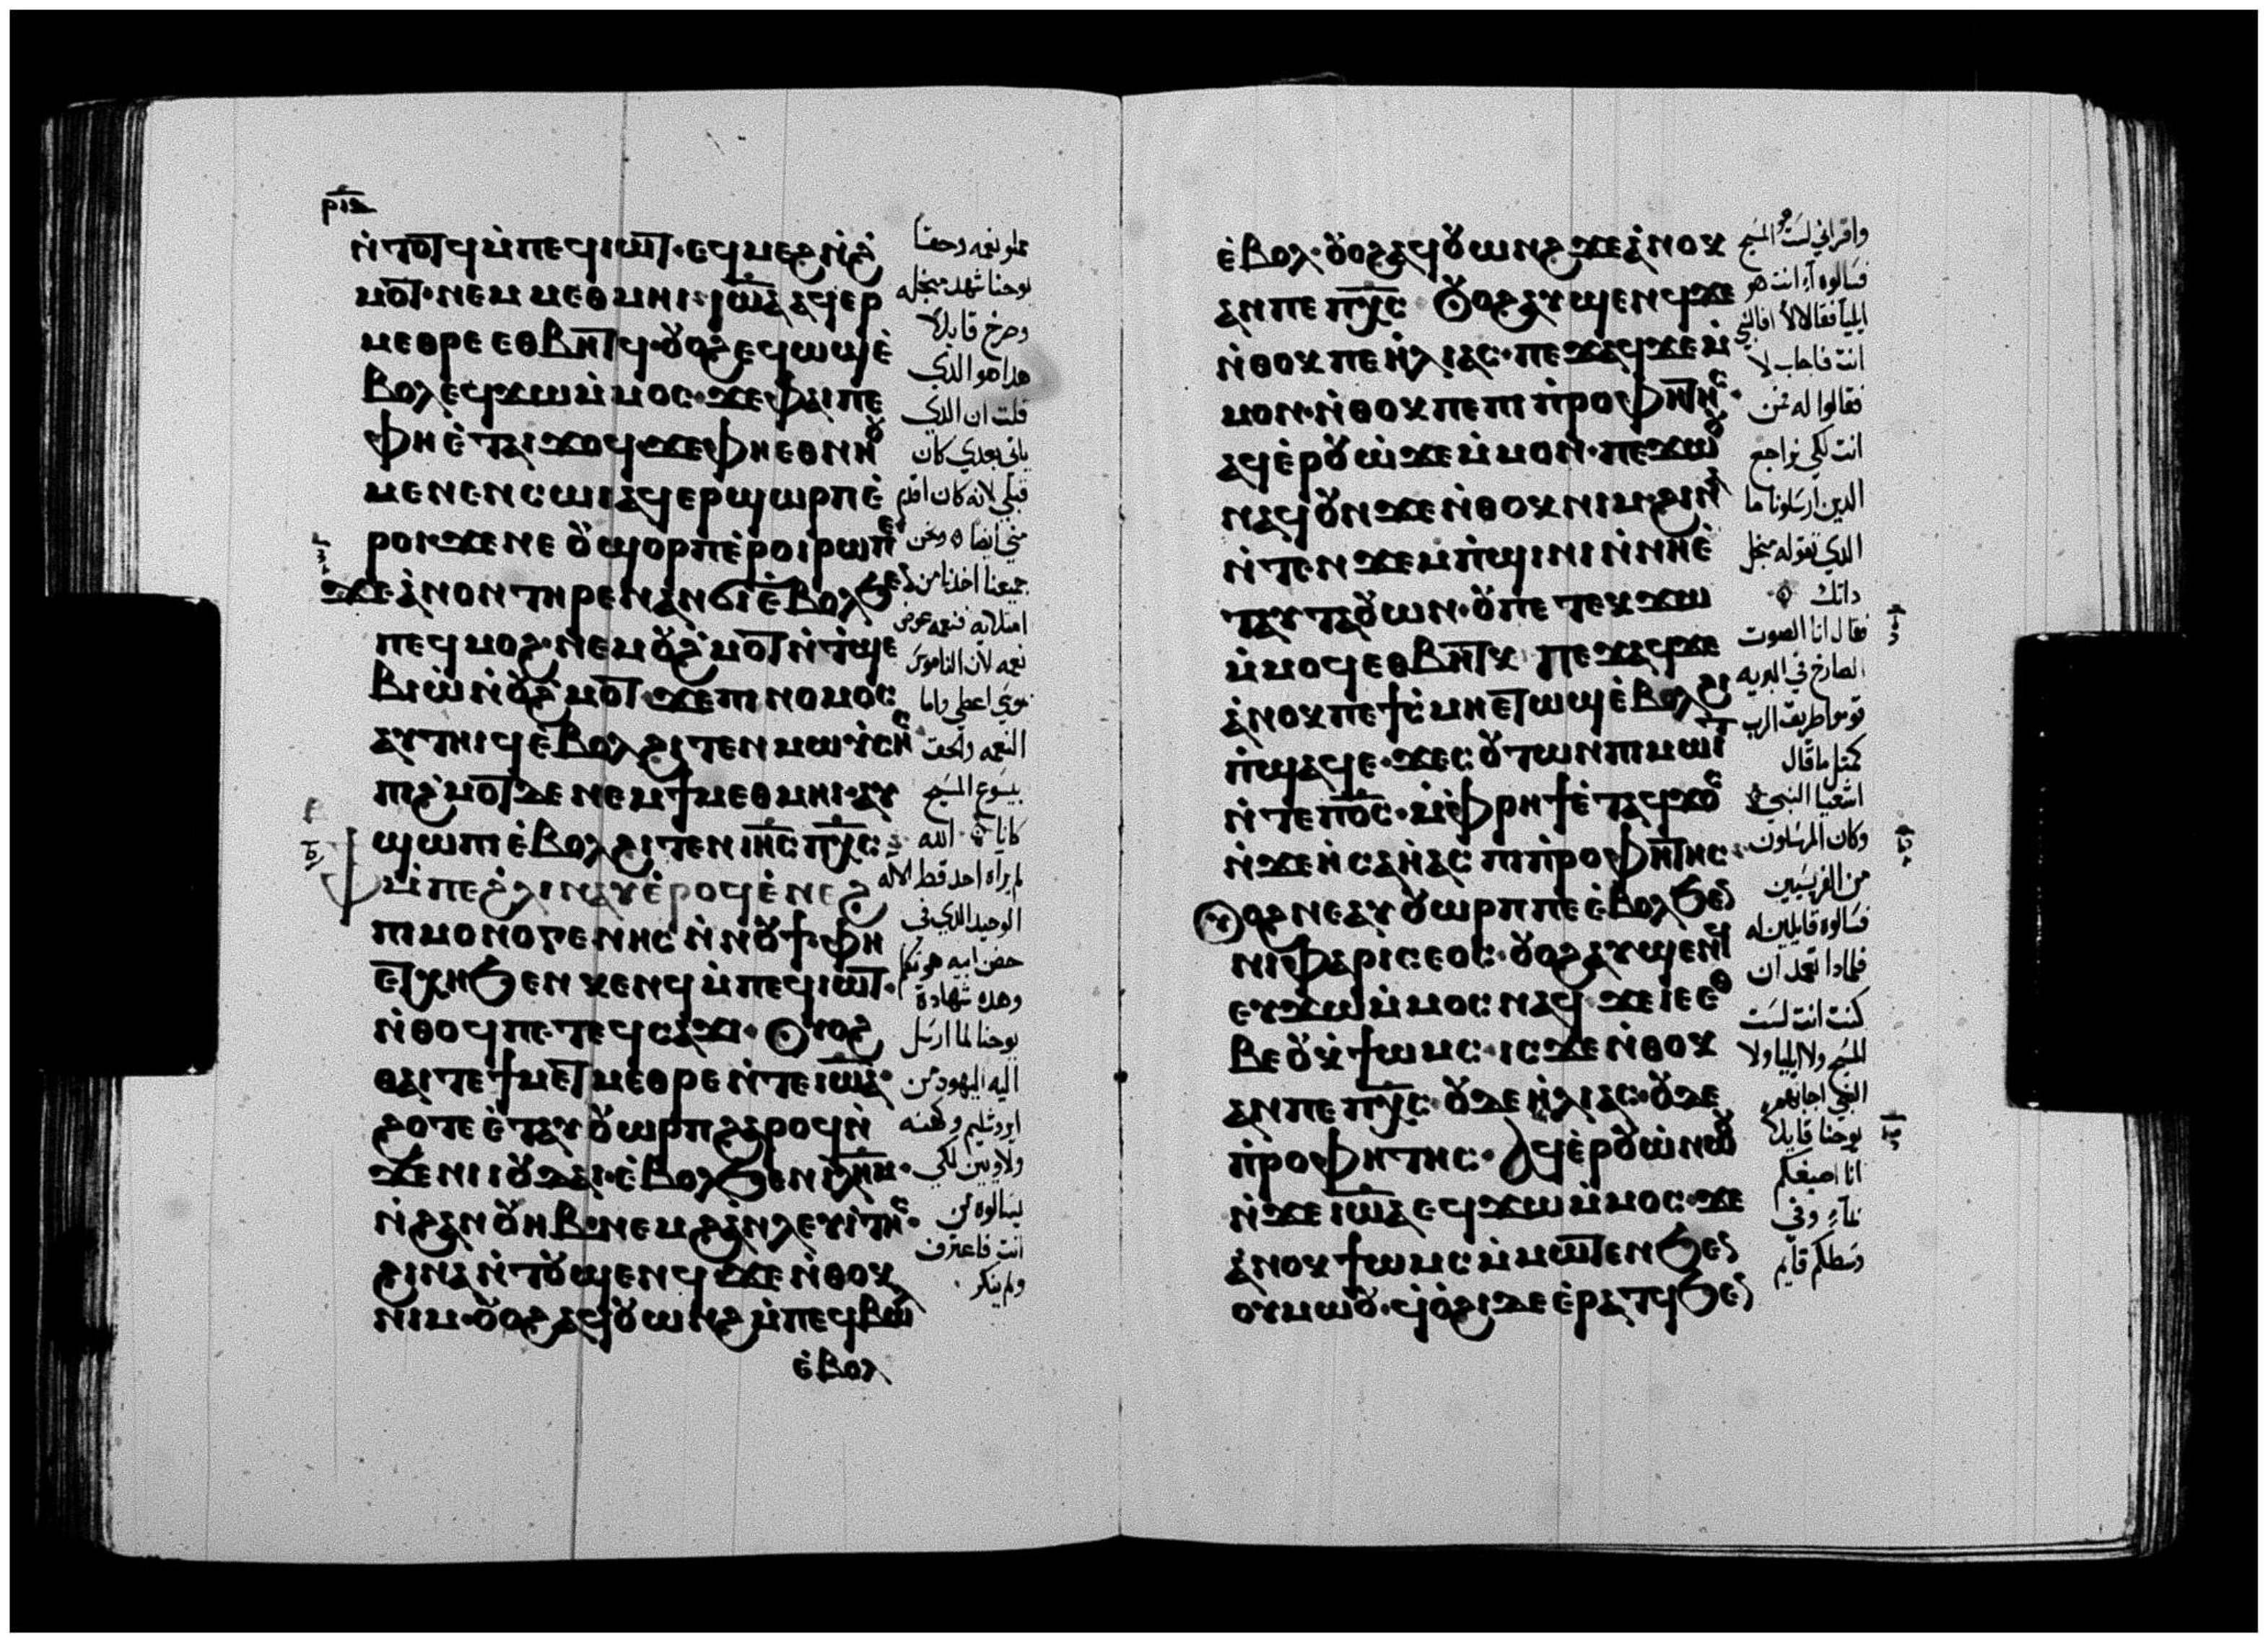 ⲣⲓⲍ
ⲛ̇ⲧⲟⲧϥ ⲙ̇ⲡⲉϥⲓⲱⲧ· ⲉϥⲙⲉϩ ⲛ̇ϩ̇
ⲙⲟⲧ· ⲛⲉⲙ ⲙⲉⲑⲙⲏⲓ· ⲓⲱ̅ⲁ̅ ⲁϥⲉⲣ
ⲙⲉⲑⲣⲉ ⲉⲑⲃⲏⲧϥ· ⲟⲩⲟϩ ⲉϥⲱϣ ⲉ̇
ⲃⲟⲗ ⲉϥϫⲱ ⲙ̇ⲙⲟⲥ· ϫⲉ ⲫⲁⲓ ⲡⲉ
ⲫⲏ ⲉ̇ⲧⲁⲓϫⲟϥ· ϫⲉ ⲫⲏ ⲉⲑⲛⲏⲟⲩ
ⲙⲉⲛⲉⲛⲥⲱⲓ ⲁϥⲉⲣϣⲱⲣⲡ ⲉ̇
ⲣⲟⲓ· ϫⲉ ⲛⲉ ⲟⲩϣⲟⲣⲡ ⲉ̇ⲣⲟⲓ ⲣⲱ ⲡⲉ
ϫⲉ ⲁ̇ⲛⲟⲛ ⲧⲏⲣⲉⲛ ⲁⲛϭⲓ ⲉ̇ⲃⲟⲗ ϧⲉⲛ
ⲡⲉϥⲙⲟϩ· ⲛⲉⲙ ⲟⲩϩ̇ⲙⲟⲧ ⲛ̇ⲧ̇ϣⲉ
ⲃⲓⲱ̇ ⲛ̇ⲟⲩϩ̇ⲙⲟⲧ· ϫⲉ ⲡⲓⲛⲟⲙⲟⲥ
ⲁⲩⲧⲏⲓϥ ⲉ̇ⲃⲟⲗ ϩⲓⲧⲉⲛ ⲙⲱⲩ̇ⲥⲏⲥ
ⲡⲓϩ̇ⲙⲟⲧ ⲇⲉ ⲛⲉⲙ ϯⲙⲉⲑⲙⲏⲓ· ⲁⲩ
ϣⲱⲡⲓ ⲉ̇ⲃⲟⲗ ϩⲓⲧⲉⲛ ⲓⲏ̅ⲥ̅ ⲡⲭ̅ⲥ̅
ⲙ̇ⲡⲉ ϩ̇ⲗⲓ ⲛⲁⲩ ⲉ̇ⲣⲟϥ ⲉ̇ⲛⲉϩ
ⲡⲓⲙⲟⲛⲟⲅⲉⲛⲏⲥ ⲛ̇ⲛⲟⲩϯ· ⲫⲏ
ⲉⲧⲭⲏ ϧⲉⲛ ⲕⲉⲛϥ ⲙ̇ⲡⲉϥⲓⲱⲧ·
ⲛ̇ⲑⲟϥ ⲡⲉⲧⲉϥⲥⲁϫⲓ· ⲟⲩⲟϩ
ⲑⲁⲓ ⲧⲉ ϯⲙⲉⲧⲙⲉⲑⲣⲉ ⲛ̇ⲧⲉ ⲓⲱ̅ⲁ̅·
ϩⲟⲧⲉ ⲉ̇ⲧⲁⲩⲟⲩⲱⲣⲡ ϩⲁⲣⲟϥ ⲛ̇
ϫⲉ ⲛⲓⲓⲟⲩⲇⲁⲓ· ⲉ̇ⲃⲟⲗ ϧⲉⲛ ⲓⲗ̅ⲏ̅ⲙ̅·
ⲛ̇ϩⲁⲛⲟⲩⲏⲃ· ⲛⲉⲙ ϩⲁ̇ⲛⲗⲉⲩⲓ̇ⲧⲏⲥ·
ϩⲓⲛⲁ ⲛ̇ⲧⲟⲩϣⲉⲛϥ ϫⲉ ⲛ̇ⲑⲟⲕ
ⲛⲓⲙ· ⲟⲩⲟϩ ⲁϥⲟⲩⲱⲛϩ ⲙ̇ⲡⲉϥϫⲱⲗ
ⲉ̇ⲃⲟⲗ
مملو نعمه وحقا
يوحنا شهد منجله
وصرخ قايلا
هدا هو الدي
قلت ان الدي
ياتي بعدي كان
قبلي لانه كان اقدم
مني ايضا ونحن
جميعنا اخدنا من
امتلايه فنعمه عوض
نعمه لان الناموس
موسي اعطي واما
النعمه والحق
بيسوع المسيح
كانا الله
لم يراه احد قط الاله
الوحيد الدي في
حضن ابيه هو تكلم
وهده شهادة
يوحنا لما ارسل
اليه اليهود من
ايروشليم وكهنه
ولاويين لكي
يسالوه من
انت فاعترف
ولم ينكر
ⲉ̇ⲃⲟⲗ· ⲟⲩⲟϩ ⲁϥⲟⲩⲱⲛϩ ϫⲉ ⲁ̇ⲛⲟⲕ
ⲁⲛ ⲡⲉ ⲡⲭ̅ⲥ̅ ⲟⲩⲟϩ ⲁⲩϣⲉⲛϥ ϫⲉ
ⲛ̇ⲑⲟⲕ ⲡⲉ ⲏ̇ⲗⲓⲁⲥ· ⲡⲉϫⲁϥ ϫⲉ ⲙ̇
ⲙⲟⲛ· ⲛ̇ⲑⲟⲕ ⲡⲉ ⲡⲓⲡ̇ⲣⲟⲫⲏⲧⲏⲥ·
ⲁϥⲉ̇ⲣⲟⲩⲱ̇ ϫⲉ ⲙ̇ⲙⲟⲛ· ⲡⲉϫⲱⲟⲩ
ⲛⲁϥ ⲟⲩⲛ ϫⲉ ⲛ̇ⲑⲟⲕ ⲛⲓⲙ· ϩⲓⲛⲁ
ⲛ̇ⲧⲉⲛϫⲉⲙⲡ̇ϣⲓⲛⲓ ⲛ̇ⲛⲏ ⲉ̇
ⲧⲁⲩⲧⲁⲟⲩⲱⲛ· ⲟⲩ ⲡⲉⲧⲉⲕϫⲱ
ⲙ̇ⲙⲟϥ ⲉⲑⲃⲏⲧⲕ ⲡⲉϫⲁϥ ϫⲉ
ⲁ̇ⲛⲟⲕ ⲡⲉ ϯⲥ̇ⲙⲏ ⲉⲧⲱϣ ⲉ̇ⲃⲟⲗ ϩⲓ
ⲡ̇ϣⲁϥⲉ· ϫⲉ ⲥⲟⲩⲧⲱⲛ ⲡⲓⲙⲱⲓⲧ
ⲛ̇ⲧⲉ ⲡ̅ⲟ̅ⲥ̅· ⲙ̇ⲫ̇ⲣⲏϯ ⲉ̇ⲧⲁϥϫⲟⲥ
ⲛ̇ϫⲉ ⲏ̇ⲥⲁⲏ̇ⲁⲥ ⲡⲓⲡ̇ⲣⲟⲫⲏⲧⲏⲥ·
ⲟⲩⲟϩ ⲛⲉⲁⲩⲟⲩⲱⲣⲡ ⲡⲉ ⲉ̇ⲃⲟⲗ ϧⲉⲛ
ⲛⲓⲫⲁⲣⲓⲥⲉⲟⲥ· ⲟⲩⲟϩ ⲁⲩϣⲉⲛϥ
ⲉⲩϫⲱ ⲙ̇ⲙⲟⲥ ⲛⲁϥ ϫⲉ ⲓⲉ ⲉⲑ
ⲃⲉ ⲟⲩ ⲕ̇ϯⲱⲙⲥ· ⲓⲥϫⲉ ⲛ̇ⲑⲟⲕ
ⲁⲛ ⲡⲉ ⲡⲭ̅ⲥ̅· ⲟⲩⲇⲉ ⲏ̇ⲗⲓⲁⲥ· ⲟⲩⲇⲉ
ⲡ̇ⲣⲟⲫⲏⲧⲏⲥ· ⲁϥⲉ̇ⲣⲟⲩⲱ̇ ⲛⲱⲟⲩ
ⲛ̇ϫⲉ ⲓⲱ̅ⲁ̅ ⲉϥϫⲱ ⲙ̇ⲙⲟⲥ· ϫⲉ
ⲁ̇ⲛⲟⲕ ϯⲱⲙⲥ ⲙ̇ⲙⲱⲧⲉⲛ ϧⲉⲛ
ⲟⲩⲙⲱⲟⲩ· ϥ̇ⲟ̇ϩⲓ ⲇⲉ ⲉ̇ⲣⲁⲧϥ ϧⲉⲛ
واقر اني لست هو المسيح
فسالوه اانت هو
ايليا فقال لا افالنبي
انت فاجاب لا
فقالوا له فمن
انت لكي نراجع
الدين ارسلونا ما
الدي تقوله منجل
داتك
فقال انا الصوت
الصارخ في البريه
قوموا طريق الرب
كمثل ما قال
اشعيا النبي
وكان المرسلون
من الفريسيين
فسالوه قايلين له
فلمادا تعمد ان
كنت انت لست
المسيح ولا ايليا ولا
النبي اجابهم
يوحنا قايلا
انا اصبغكم
بماء وفي
وسطكم قايم